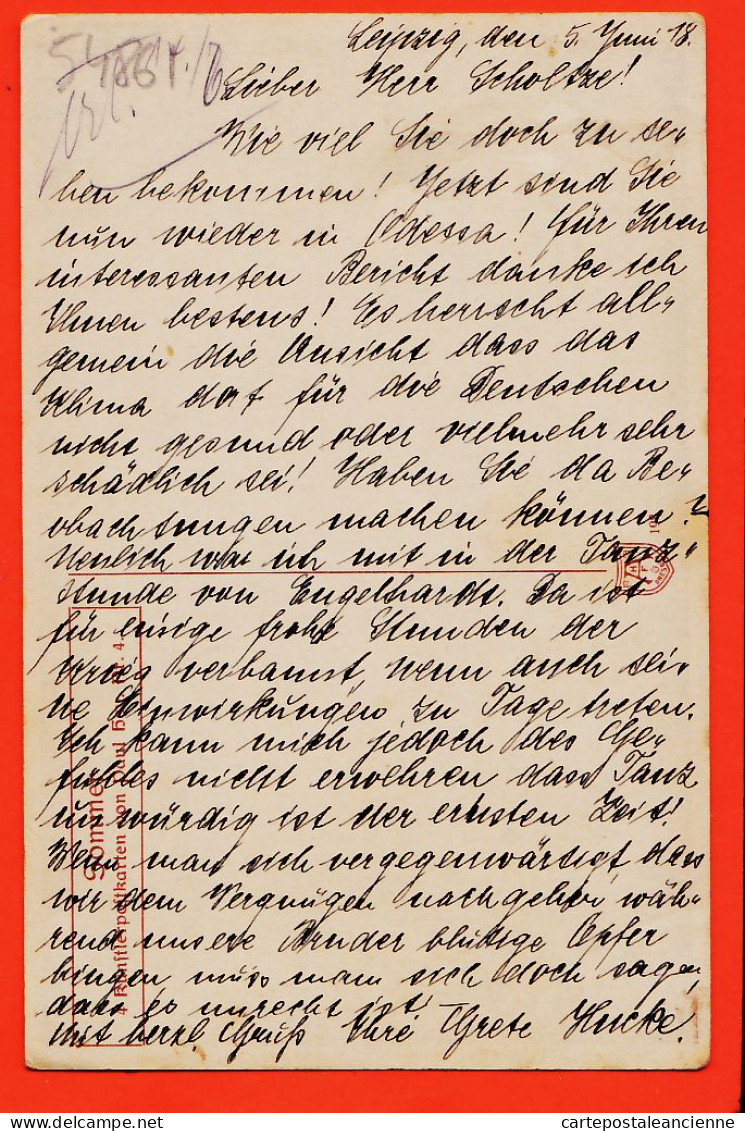 Leipzig, den 5. Juni 18.
Lieber Herr Scholtze!
Wie viel Sie doch zu se-
hen bekommen! Jetzt sind Sie
nun wieder in Odessa! Für Ihren
interessanten Bericht danke ich
Ihnen bestens! Es herrscht all-
gemein die Ansicht dass das
Klima dort für die Deutschen
nicht gesund oder vielmehr sehr
schädlich sei! Haben Sie da Be-
obachtungen machen können?
Neulich war ich mit in der Tanz-
stunde von Engelhardt. Da ist
für einige frohe Stunden der
Krieg verbannt, wenn auch sei-
ne Einwirkungen zu Tage treten.
Ich kann mich jedoch des Ge-
fühles nicht erwehren dass Tanz
unwürdig ist der ernsten Zeit!
Wenn man sich vergegenwärtigt, dass
wir dem Vergnügen nachgehen, wäh-
rend unsere Brüder blutige Opfer
bringen muss man sich doch sagen,
dass es unrecht ist.
Mit herzl. Gruß Ihre Grete Hucke.
Sommer
Künstlerpostkarten von Paul
cartepostaleancienne.com